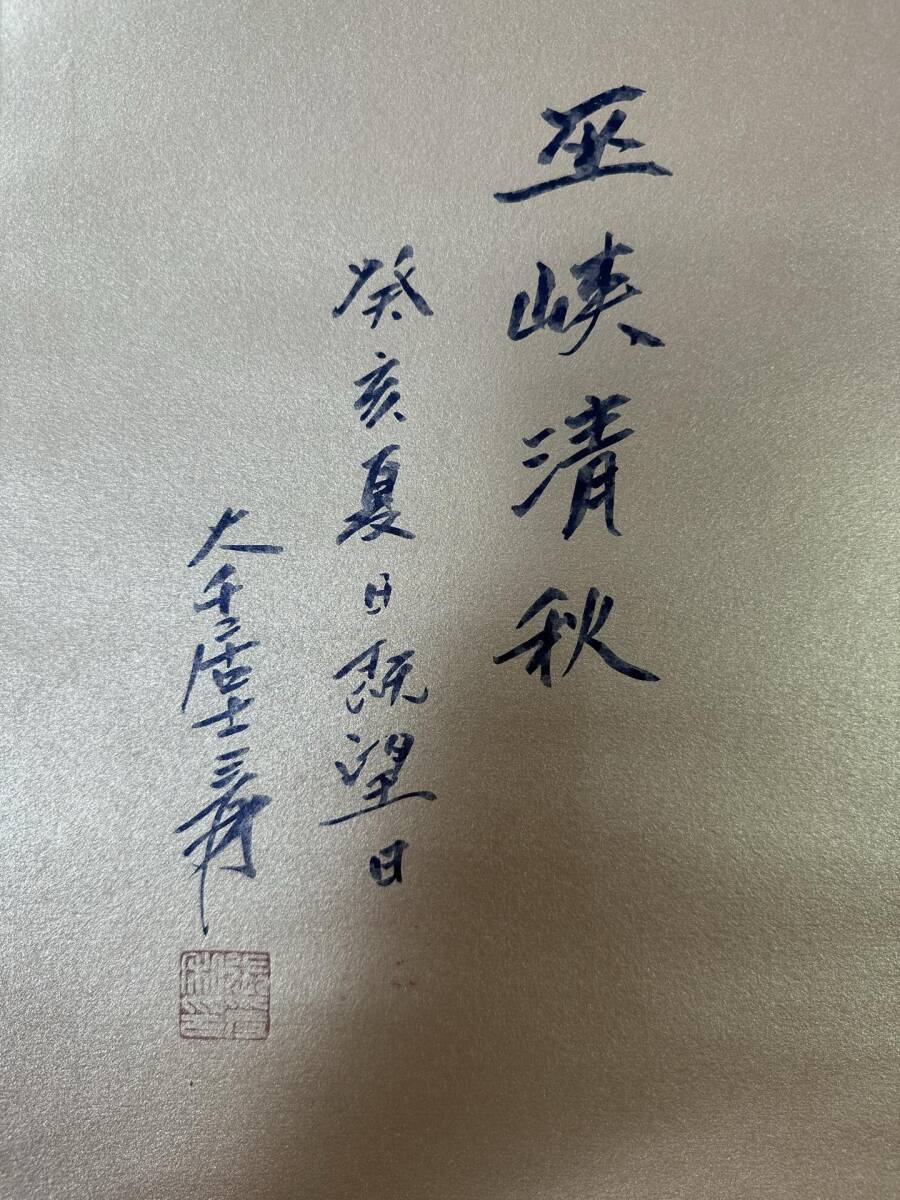 巫峡清秋
癸亥夏日既望日
大千居士爰